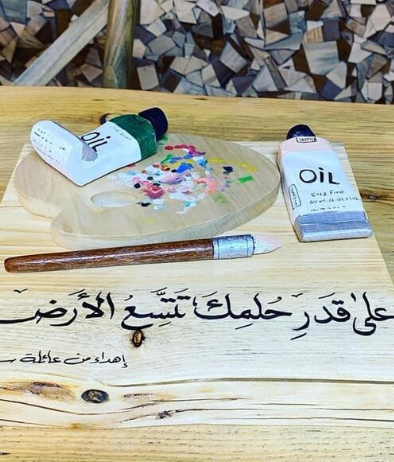 OIL
OIL
Extra fine
على قَدَرِ حُلمِكَ تَتَّسِعُ الأرض
إهداء من عائلة